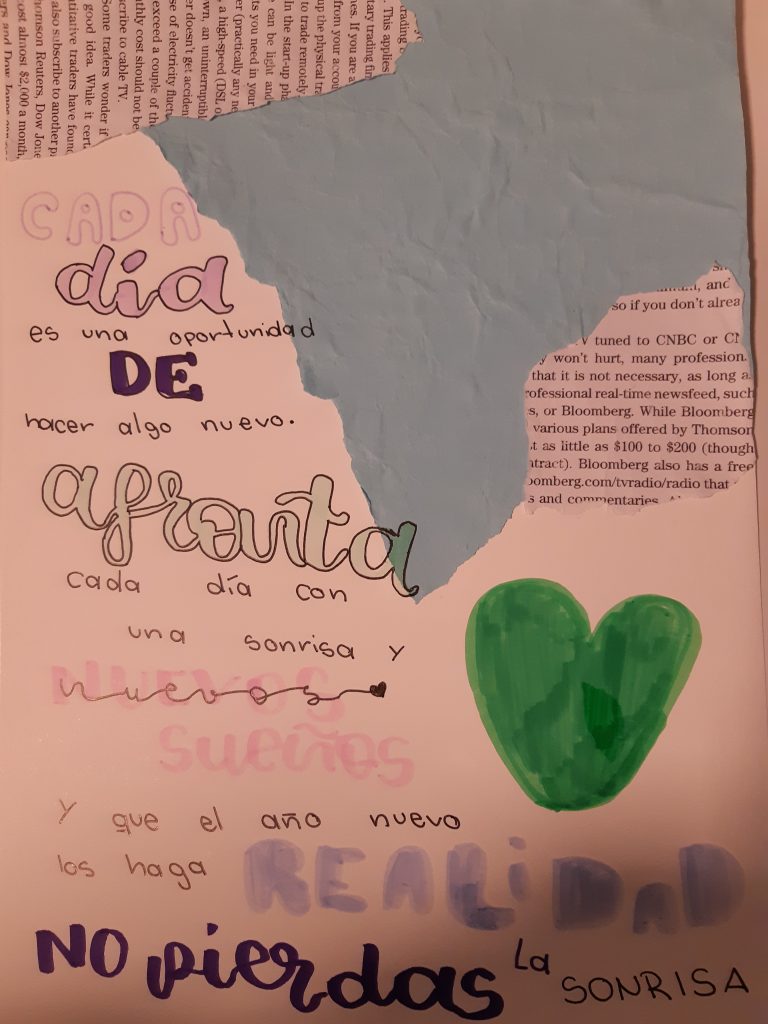 CADA
día
es una oportunidad
DE
hacer algo nuevo.
afronta
cada día con
una sonrisa y
NUEVOS
nuevos
sueños
y que el año nuevo
los haga REALiDAD
NO pierdas la SONRISA
. This applies
tary trading fir
nes. If you are a
from your accou
to trade remotely
up the physical tra
In the start-up pha
can be light and
ts you need in your
er (practically any ne
, a high-speed (DSL o
wn, an uninterruptibl
er doesn't get acciden
se of electricity fluct
exceed a couple of th
thly cost should not be
cribe to cable TV.
Some traders wonder if
good idea. While it cert
titative traders have foun
also subscribe to another p
homson Reuters, Dow Jone
cost almost $2,000 a month,
ers and Dow Jones
, and
so if you don't alrea
tuned to CNBC or CN
y won't hurt, many profession
that it is not necessary, as long a
rofessional real-time newsfeed, such
s, or Bloomberg. While Bloomberg
various plans offered by Thomson
t as little as $100 to $200 (though
ntract). Bloomberg also has a free
oomberg.com/tvradio/radio that
s and commentaries.